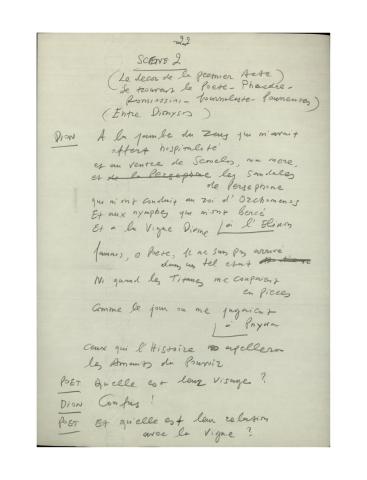 99
SCENE 2
(Le decor de la premier Acte)
Se trouvent le Poete - Phaedre -
Journaliste
(Entre Dionysos)
DION A la jambe du Zeus qui m'avait
offert hospitalité
et au ventre de Semelos, ma mere,
et les Sandales
de Persephone
qui m'ont conduit au roi d'Orchomenos
Et aux nymphes qui m'ont bercé
Et a la Vigne Divine
Jamais, o Poete, je ne suis pas arrivé
dans un tel etat
Ni quand les Titanes me coupaient
en pieces
Comme le jour ou me jugeaient
a Pnyka
Ceux qui l'Histoire apelleron
les Amants du Pouvoir
POET Quelle est leur visage ?
DION Confus !
POET Et quelle est leur relation
avec la Vigne ?